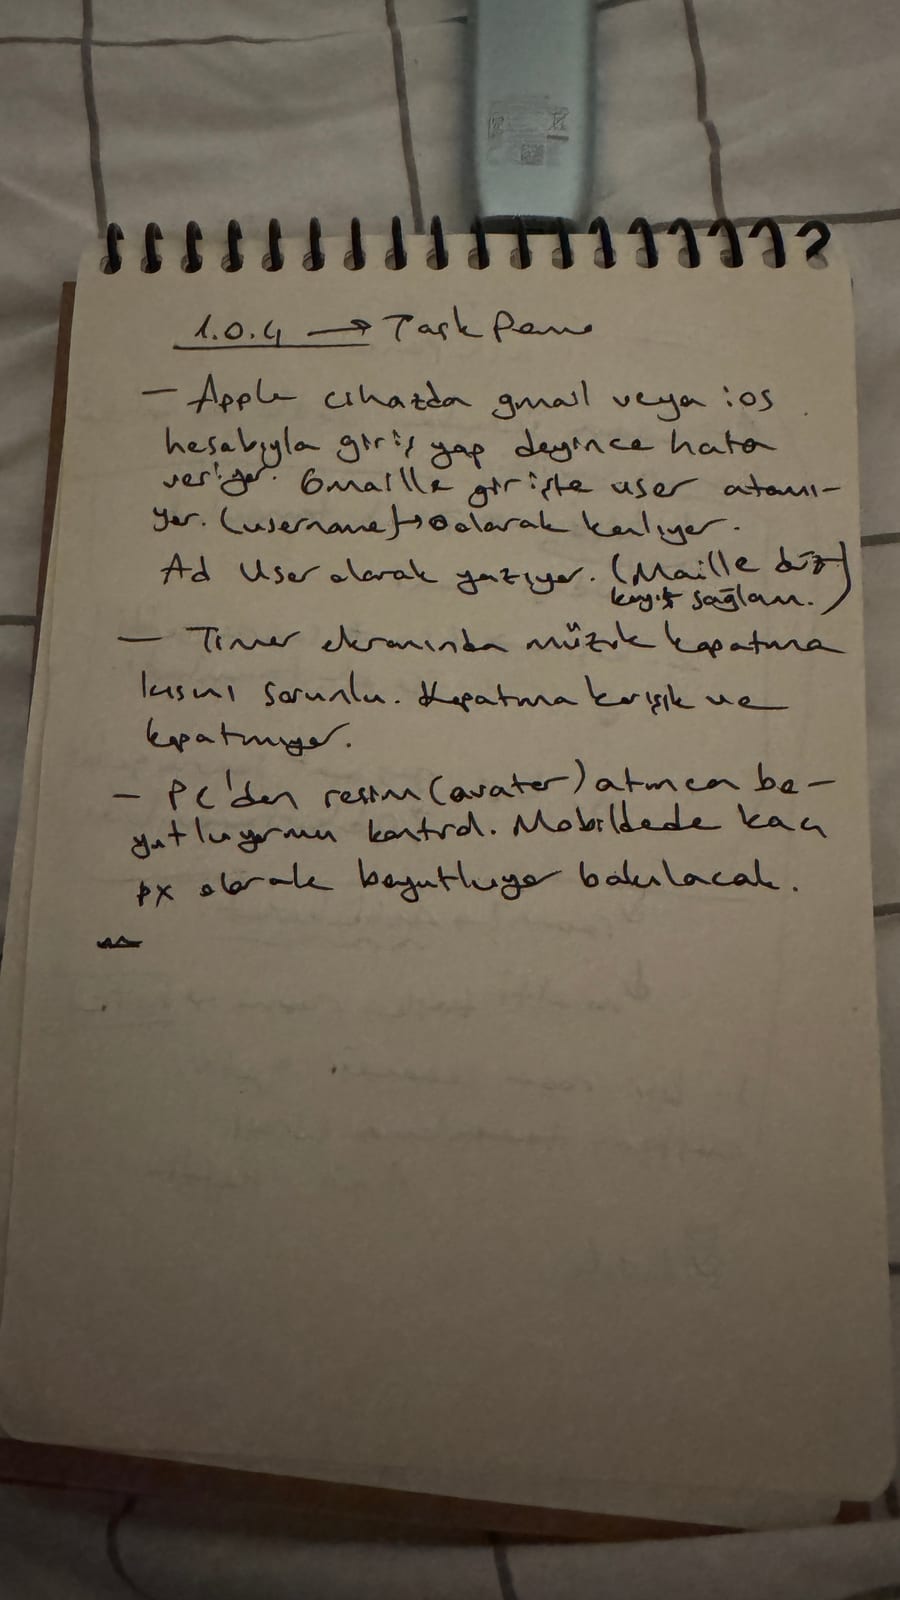 1.0.4 → Task Pano
— Apple cihazda gmail veya ios
hesabıyla giriş yap deyince hata
veriyor. Gmaille girişte user atanı-
yor. (username)→ olarak kalıyor.
Ad User olarak yazıyor. (Maille düz
kayıt sağlam.)
— Timer ekranında müzik kapatma
kısmı sorunlu. Kapatma karışık ve
kapatmıyor.
— PC'den resim (avatar) atınca bo-
yutluyormu kontrol. Mobildede kaç
px olarak boyutluyor bakılacak.